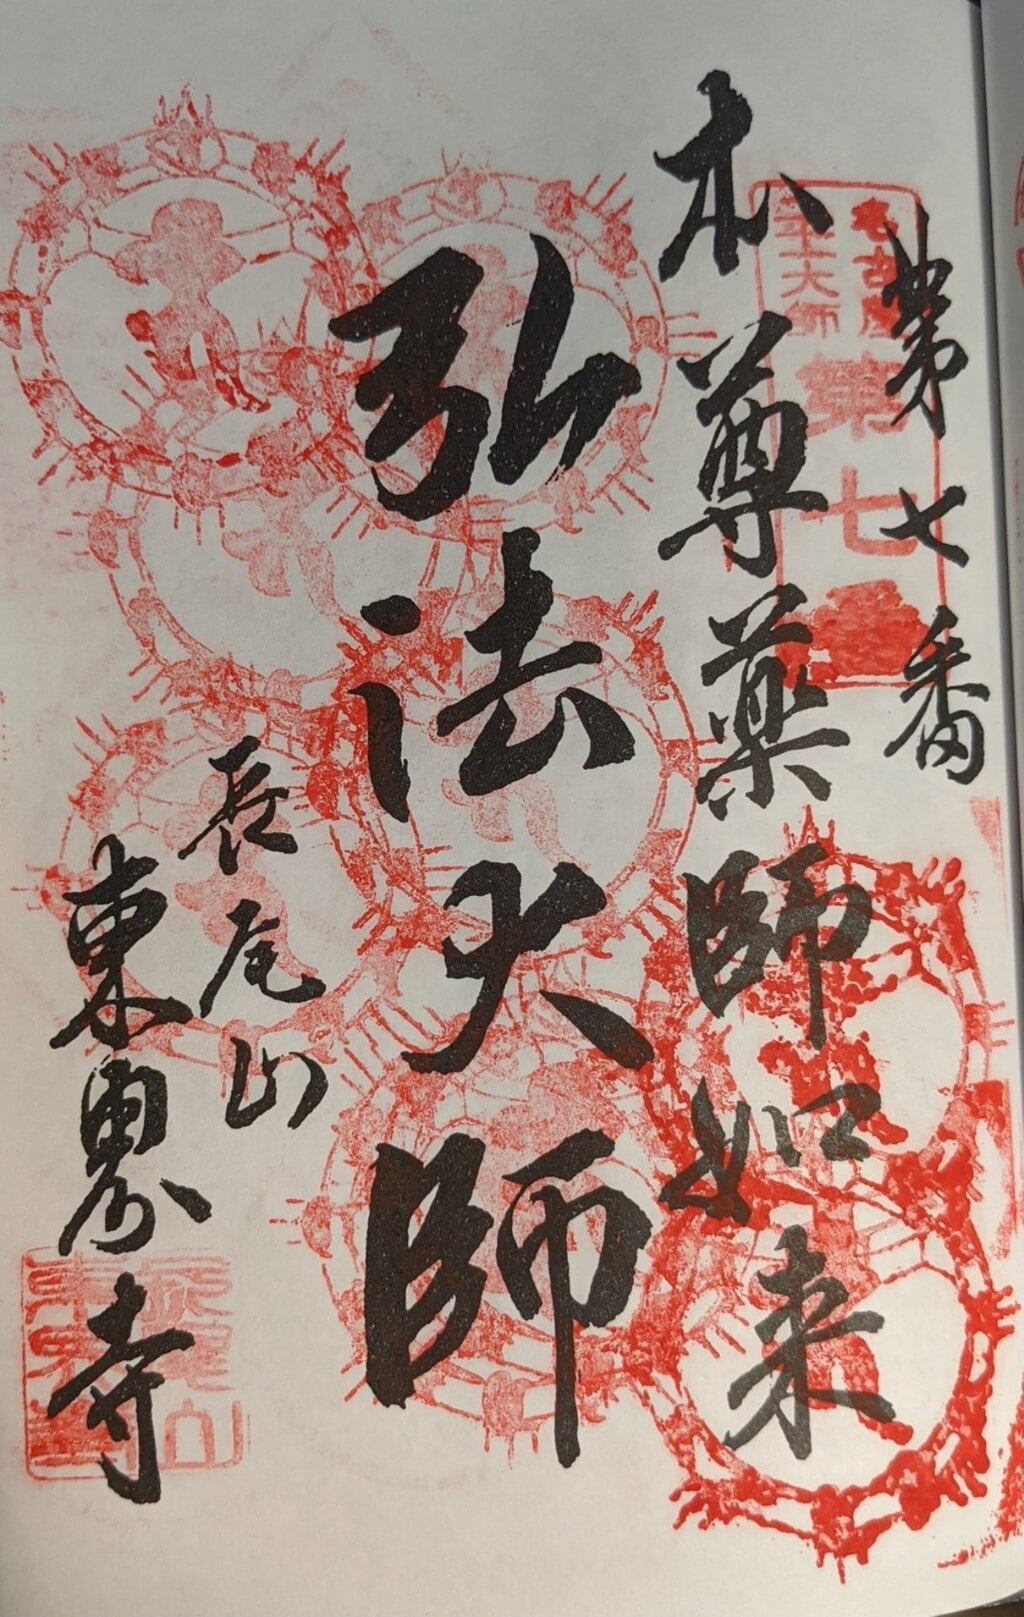 第七番
名古屋
廿一大師
第七番
本尊薬師如来
弘法大師
長尾山
東界寺
長尾山
東界寺